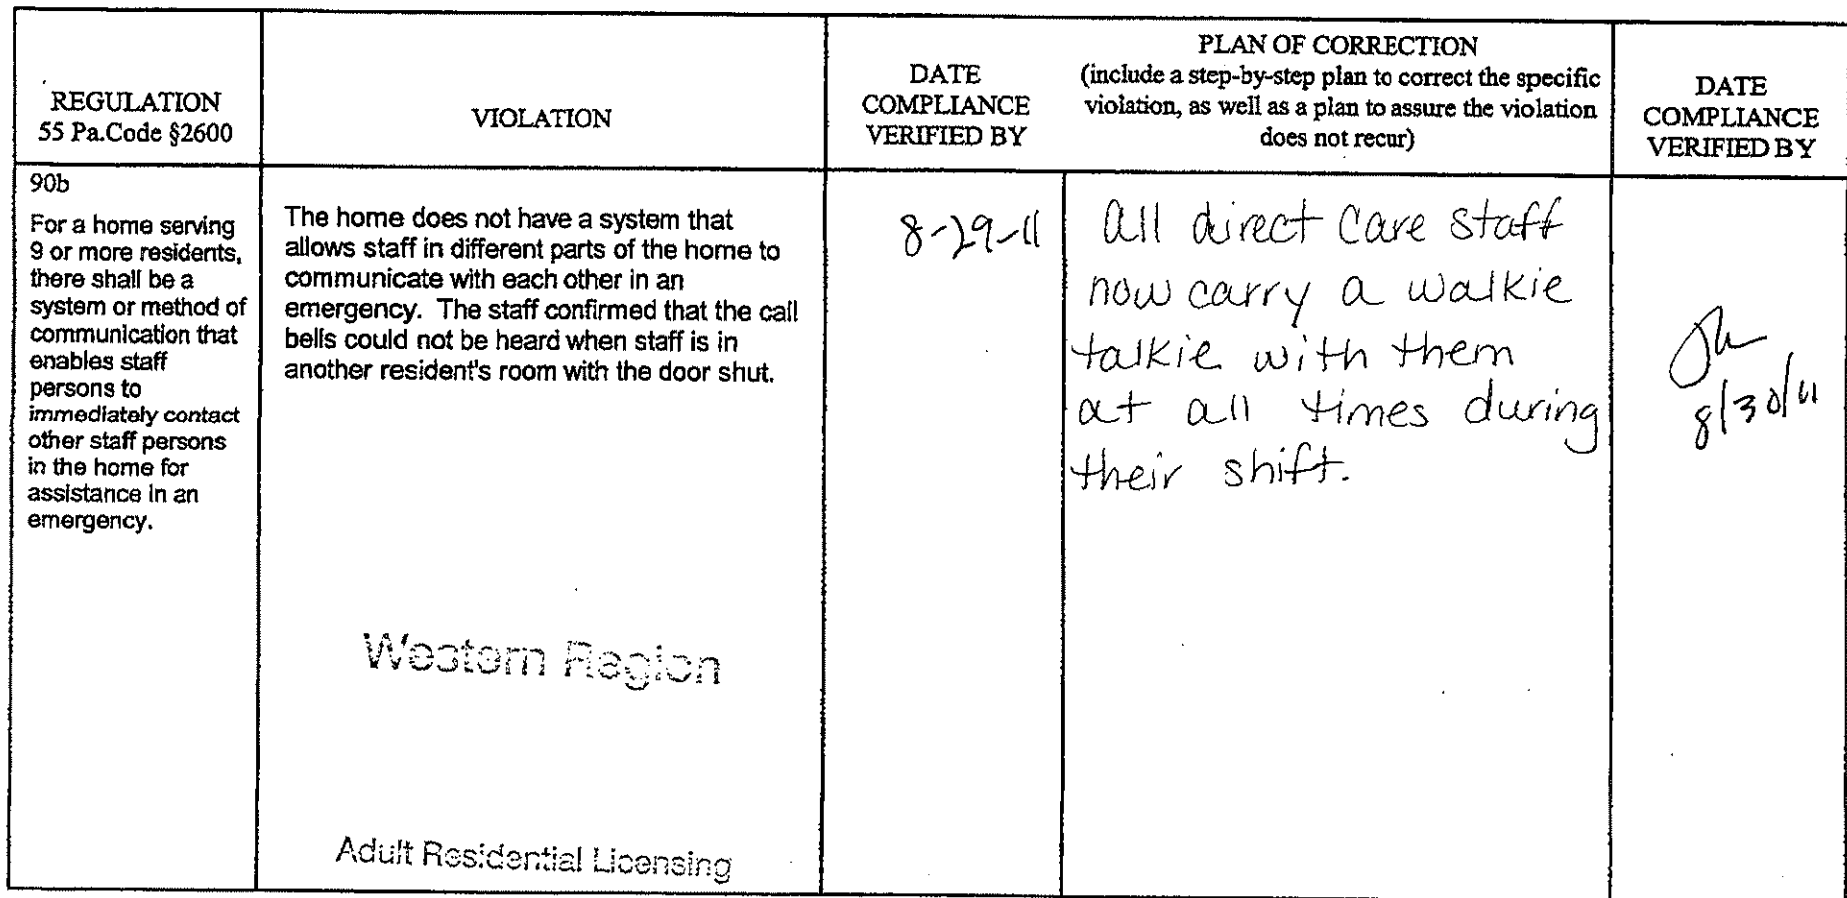 REGULATION
55 Pa.Code §2600
VIOLATION
DATE
COMPLIANCE
VERIFIED BY
PLAN OF CORRECTION
(include a step-by-step plan to correct the specific
violation, as well as a plan to assure the violation
does not recur)
DATE
COMPLIANCE
VERIFIED BY
90b
For a home serving
9 or more residents,
there shall be a
system or method of
communication that
enables staff
persons to
immediately contact
other staff persons
in the home for
assistance in an
emergency.
The home does not have a system that
allows staff in different parts of the home to
communicate with each other in an
emergency. The staff confirmed that the call
bells could not be heard when staff is in
another resident's room with the door shut.
Western Region
Adult Residential Licensing
8-29-11
All direct care staff
now carry a walkie
talkie with them
at all times during
their shift.
8/30/11